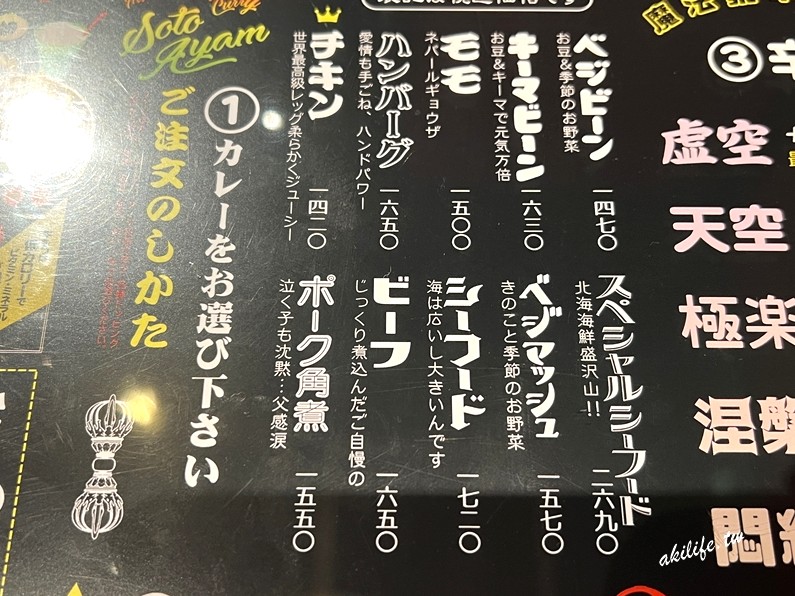 Curry
Soto
Ayam
ご注文のしかた
①カレーをお選び下さい
チキン
世界最高級レッグ柔らかくジューシー
一四二〇
ハンバーグ
愛情も手ごね、ハンドパワー
一六五〇
モモ
ネパールギョウザ
一五〇〇
キーマビーン
お豆&キーマで元気万倍
一六三〇
ベジビーン
お豆&季節のお野菜
一四七〇
ポーク角煮
泣く子も沈黙…父感涙
一五五〇
ビーフ
じっくり煮込んだご自慢の
一六五〇
シーフード
海は広いし大きいんです
一七二〇
ベジマッシュ
きのこと季節のお野菜
一五七〇
スペシャルシーフード
北海海鮮盛沢山!!
二六九〇
③辛
虚空
天空
極楽
涅槃
akilife.tw